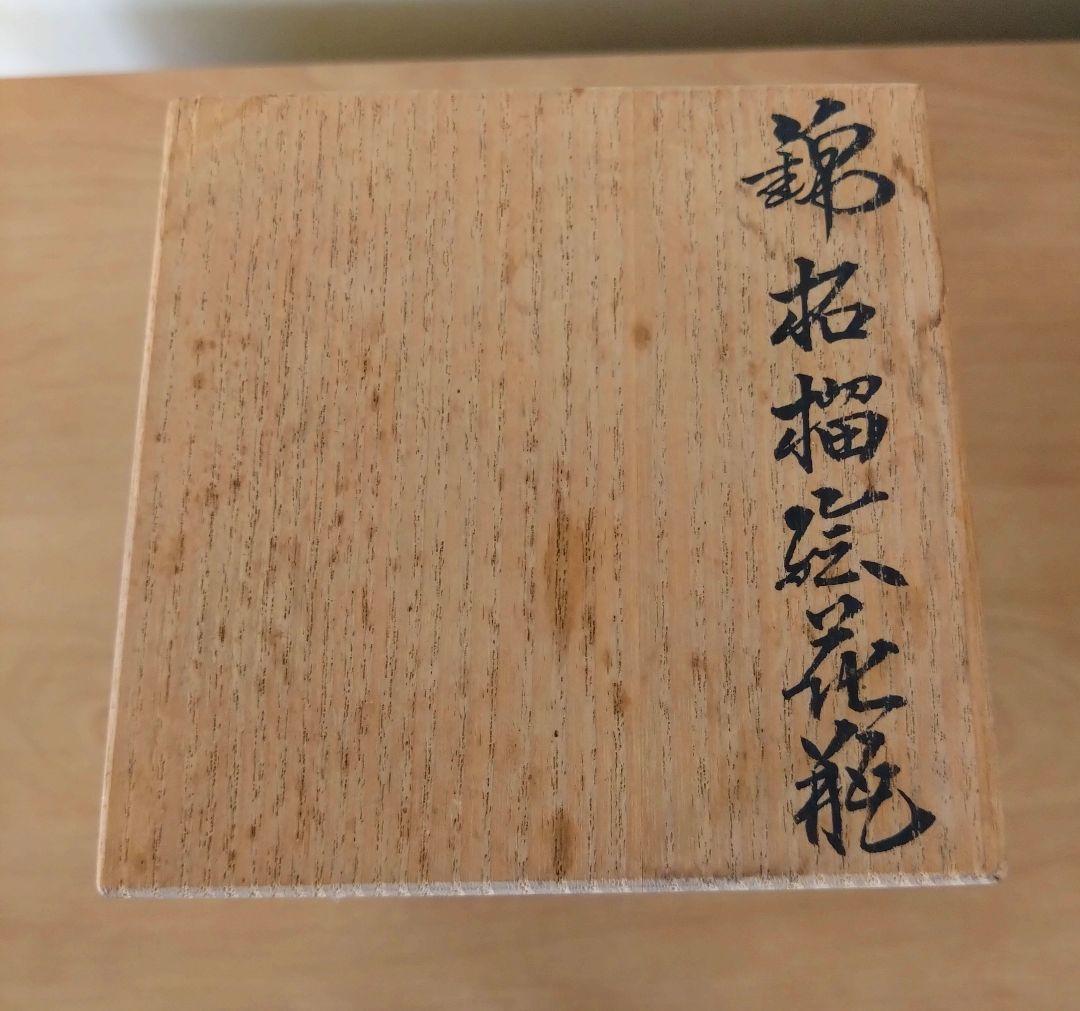 錦柘榴絵花瓶